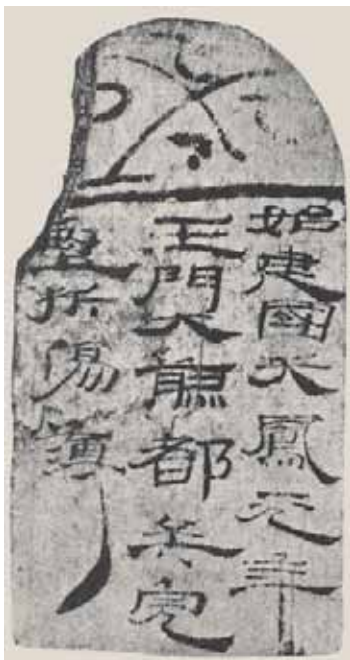 始建國天鳳元年
玉門大煎都兵完
堅折傷簿